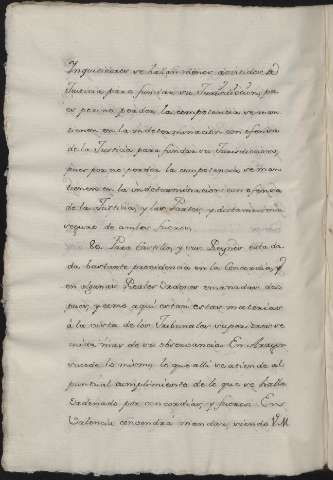 Inquisidores se hallan menos asistidos de
Justicia para fundar su Jurisdiccion, pa
es por no perder la competencia se man
tienen en la indeterminacion con ofensa
de la Justicia para fundar su Jurisdiccion,
pues por no perder la competencia se man
tienen en la indeterminacion con ofensa
de la Justicia, y las Partes, y dictamen mui
seguro de ambos fueros.
80. Para Castilla, y sus Reynos esta da
da bastante providencia en la Concordia, y
en algunas Reales Cedulas emanadas des
pues, y como aqui estan estas materias
à la vista de los Tribunales superiores se
cuida mas de su observancia. En Aragon
sucede lo mismo, lo que alli se atiende al
puntual cumplimiento de lo que se halla
ordenado por concordias, y fueros. En
Valencia convendrá mandar, siendo V. M.